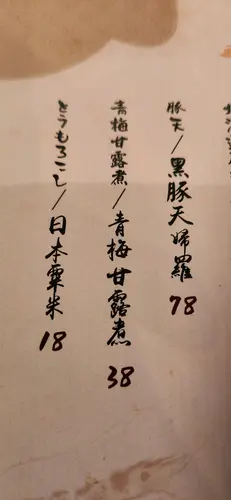 豚天/黒豚天婦羅 78
青梅甘露煮/青梅甘露煮 38
とうもろこし/日本粟米 18